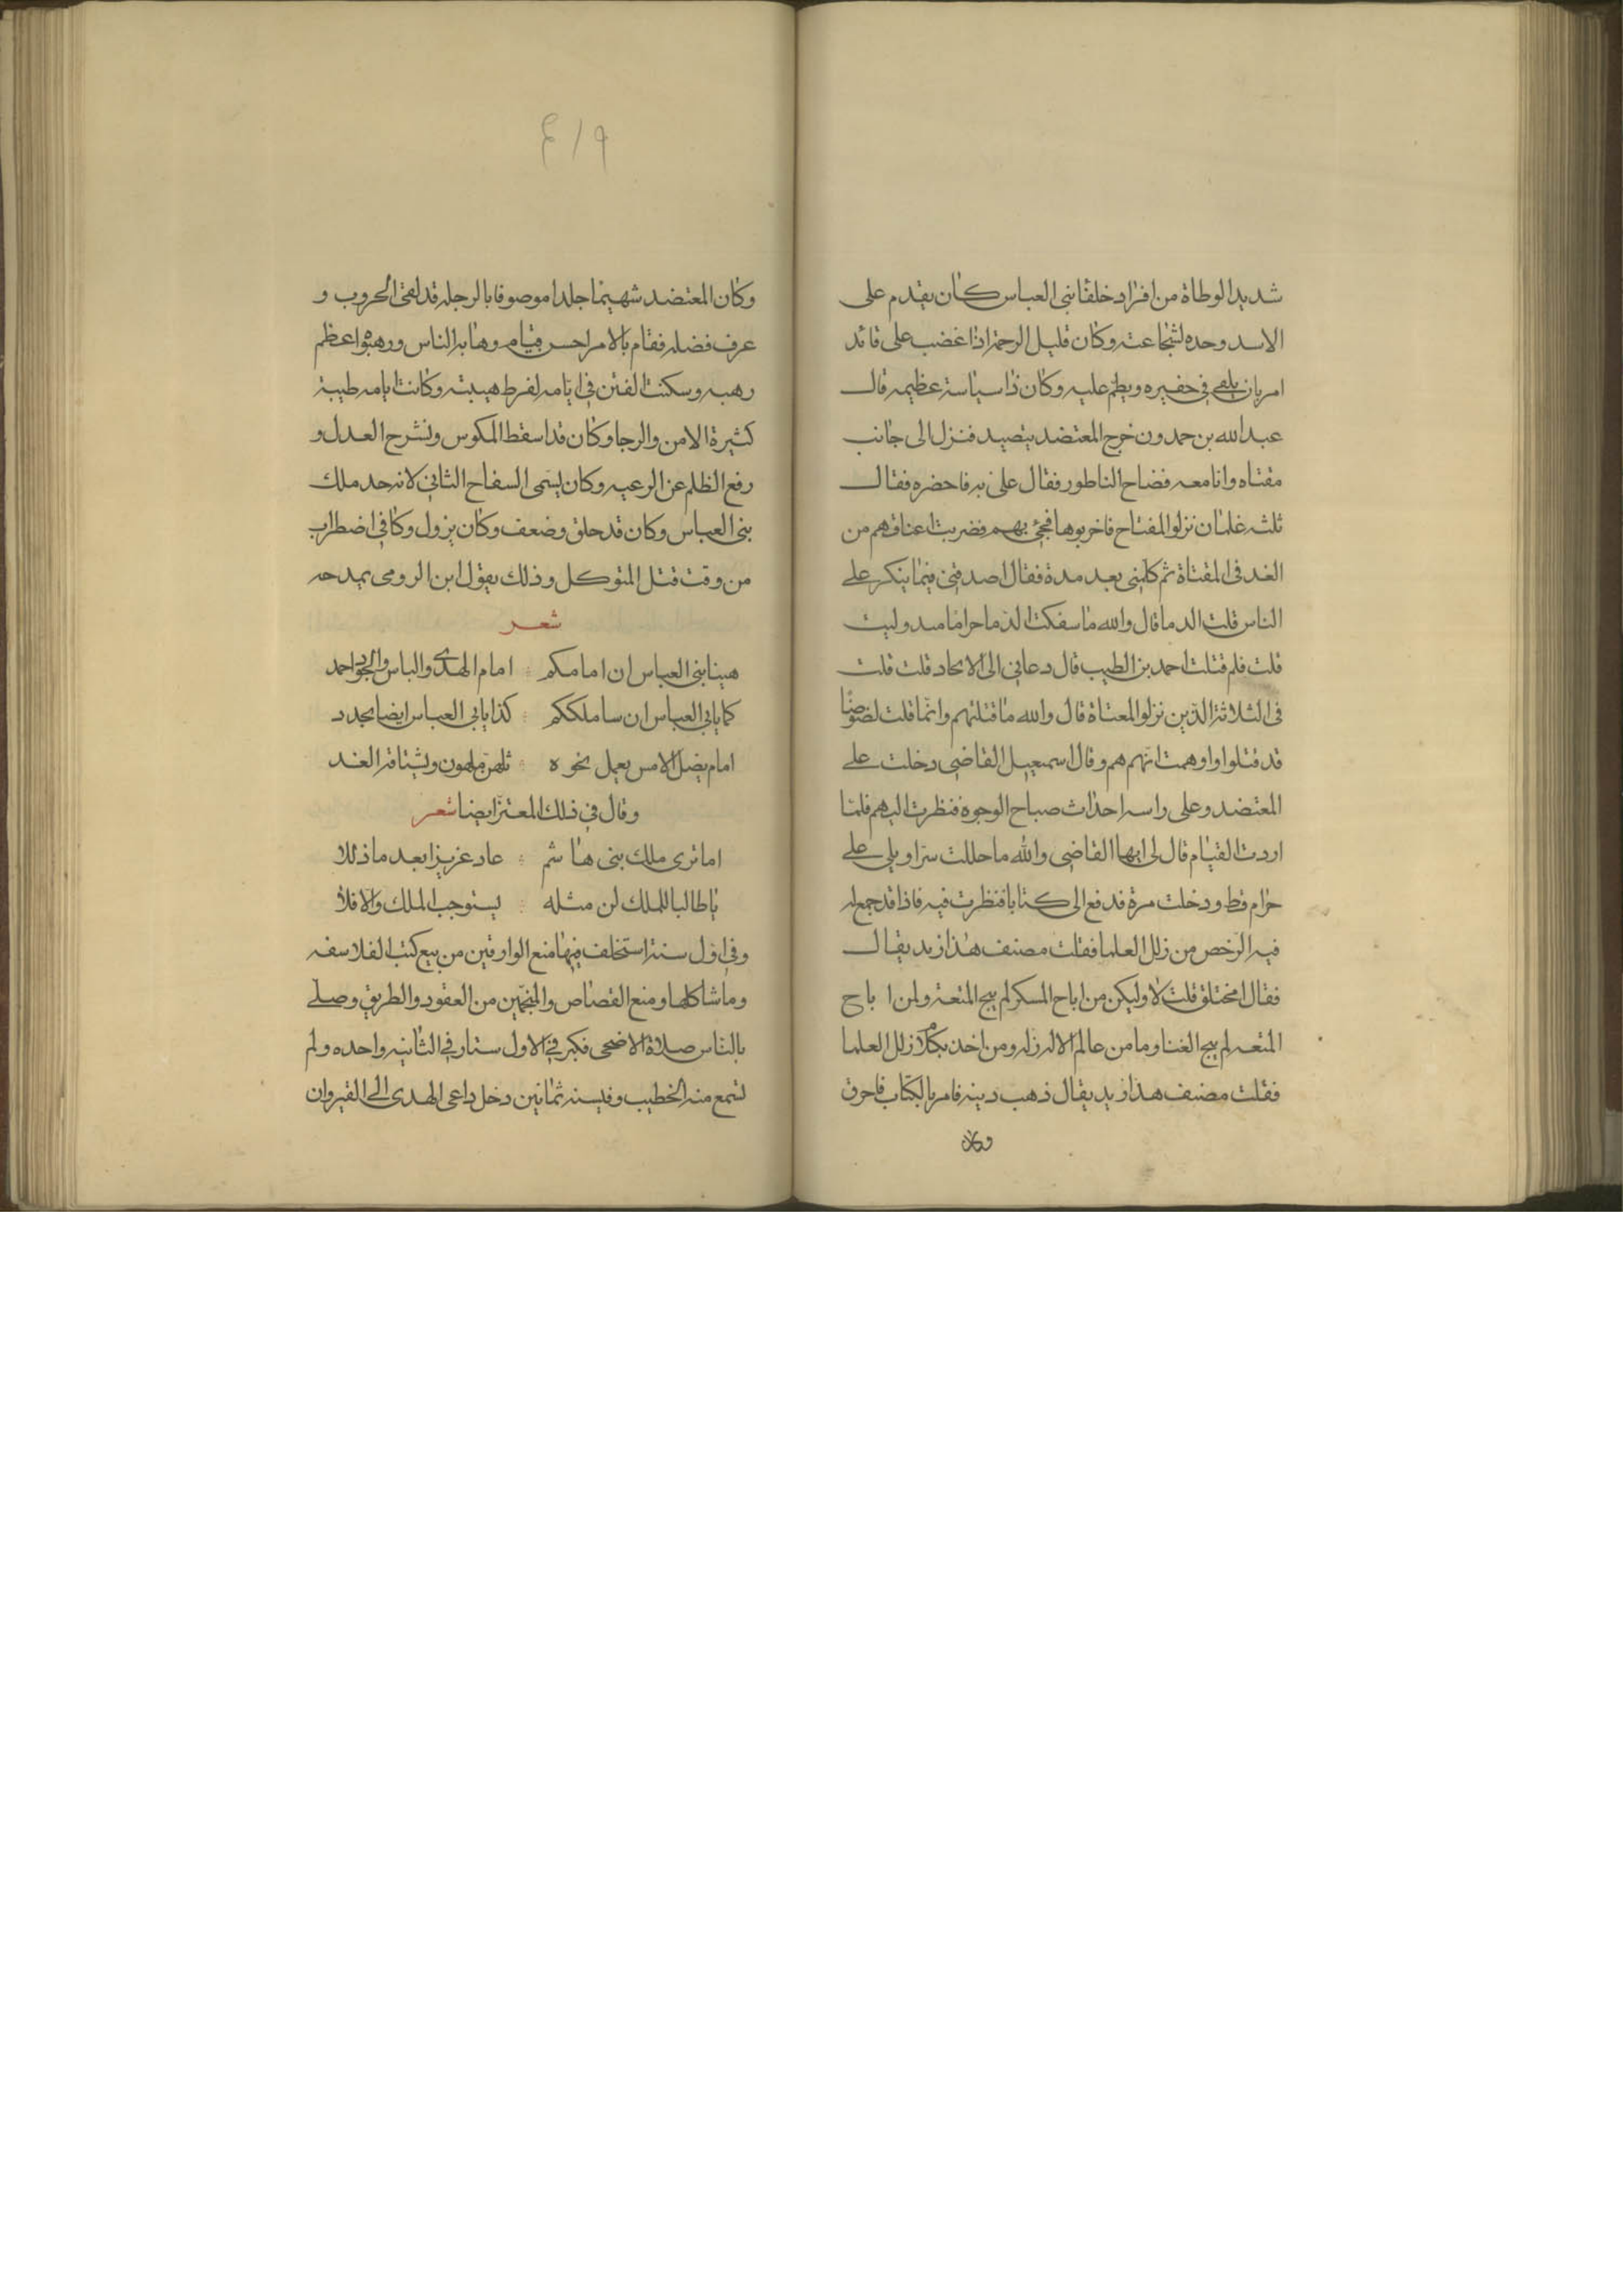 شديد الوطاة من افراد خلفا بنى العباس كان يقدم على
الاسد وحده لشجاعته وكان قليل الرحمة اذا غضب على قائد
امر بان يلقى فى حفيره ويطم عليه وكان ذا سياسة عظيمه قال
عبد الله بن حمدون خرج المعتضد يتصيد فنزل الى جانب
مقتاه وانا معه فصاح الناطور فقال على به فاحضره فقال
ثلثه غلمان نزلوا المفتاح فاخربوها فجئ بهم فضربت اعناقهم من
الغد فى المقتاة ثم كلمنى بعد مدة فقال اصدقنى فيما ينكر على
الناس قلت الدما قال والله ما سفكت الدما حراما منذ وليت
قلت فلم قتلت احمد بن الطيب قال دعانى الى الالحاد قلت قلت
فى الثلاثة الذين نزلوا المعتاة قال والله ما قتلتهم وانما قلت لصوصا
قد قتلوا واوهمت انهم هم وقال اسمعيل القاضى دخلت على
المعتضد وعلى راسه احداث صباح الوجوه فنظرت اليهم فلما
اردت القيام قال لى ايها القاضى والله ما حللت سراويلى على
حرام قط ودخلت مرة فدفع الى كتابا فنظرت فيه فاذا قد جمع له
فيه الرخص من زلل العلما فقلت مصنف هذا زنديق قال
فقال امختلق قلت لا وليكن من اباح المسكر لم يبح المتعة ولمن اباح
المتعه لم يبح الغنا وما من عالم الا له زله ومن اخذ بكلام زلل العلما
فقلت مصنف هذا زنديق قال ذهب دينه فامر بالكتاب فاحرق
وكان
٤١٩
وكان المعتضد شهيما جلدا موصوفا بالرجله قد لقى الحروب و
عرف فضله فقام بالامر احسن قيام وهابه الناس ورهبوا اعظم
رهبه وسكنت الفتن فى ايامه لفرط هيبته وكانت ايامه طيبة
كثيرة الامن والرجا وكان قد اسقط المكوس ونشر ح العدل و
رفع الظلم عن الرعيه وكان يسمى السفاح الثانى لانه حد ملك
بنى العباس وكان قد خلق وضعف وكان يزول وكا فى اضطراب
من وقت قتل المتوكل وذلك يقول ابن الرومى يمدحه
شعر
هينا بنى العباس ان امامكم امام الهدى والباس والجود احمد
كما بابى العباس ان سا ملككم كذا بابى العباس ايضا يجدد
امام يضل الامس يعمل نحوه تلهن ملهون ويشتاقه الغد
وقال فى ذلك المعتز ايضا شعر
اما ترى ملك بنى هاشم عاد عزيزا بعد ما ذللا
يا طالبا للملك لن مثله يستوجب الملك والا فلا
وفى اول سنة استخلف فيها منع الوراقين من بيع كتب الفلاسفه
وما شاكلها ومنع القصاص والمنجمين من العقود والطريق وصلى
بالناس صلاة الاضحى فكبر فى الاول ستا وفى الثانيه واحده ولم
تسمع منه الخطيب وفى سنه ثمانين دخل داعى الهدى الى القيروان